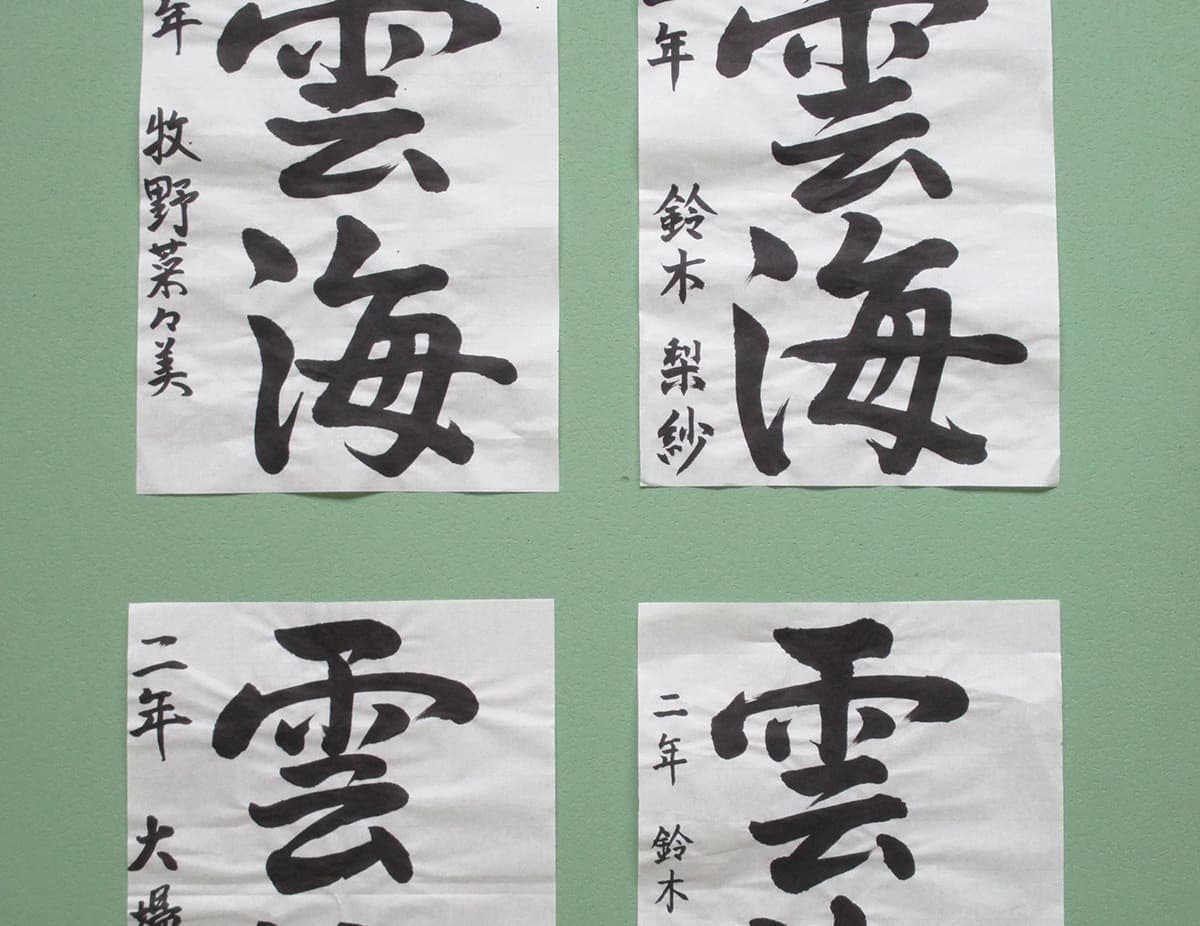 雲海
年 牧野菜々美
雲海
年 鈴木 梨紗
雲
二年 大場
雲
二年 鈴木